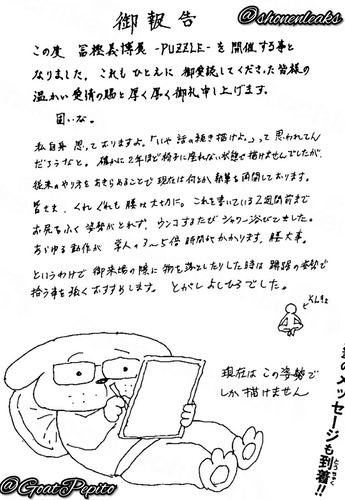 @shonenleaks
御報告
この度 冨樫義博展 -PUZZLE- を開催する事と
なりました。これもひとえに 御愛読してくださった皆様の
温かい愛情の賜と厚く厚く御礼申し上げます。
固いな。
私自身 思っておりますよ。「いや 話の続き描けよ。」って思われてん
だろうなと。確かに2年ほど椅子に座れない状態で描けませんでしたが、
従来のやり方をあきらめることで現在は何とか執筆を再開しております。
皆さま、くれぐれも腰は大切に。これを書いている2週間前まで
お尻をふく姿勢がとれず、ウンコするたびシャワー浴びてました。
あらゆる動作が 常人の3〜5倍時間がかかります。腰大事。
というわけで 御来場の際に物を落としたりした時は 蹲踞の姿勢で
拾う事を強くおすすめします。 とがしよしひろでした。
そんきょ
現在は この姿勢で
しか描けません
のメッセージも到着!!
とうちゃく
@GoatPupito